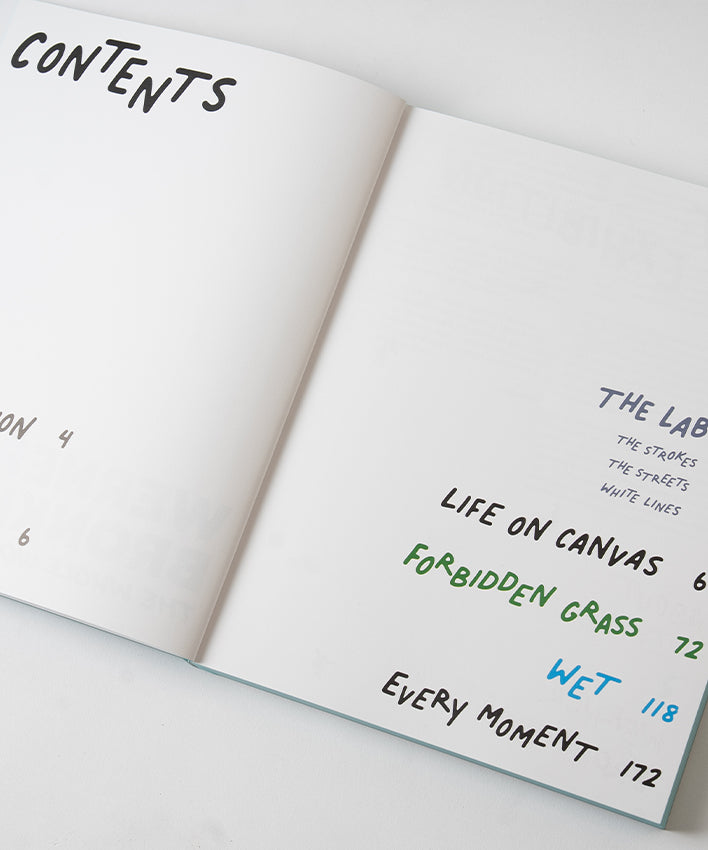 CONTENTS
ION 4
6
THE LAB
THE STROKES
THE STREETS
WHITE LINES
LIFE ON CANVAS 6
FORBIDDEN GRASS 72
WET 118
EVERY MOMENT 172